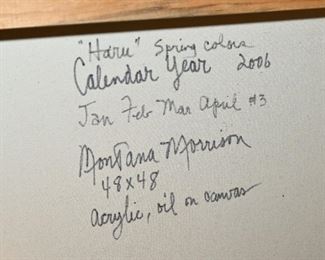 "Haru" Spring colors
Calendar Year 2006
Jan Feb Mar April #3
Montana Morrison
48x48
acrylic, oil on canvas